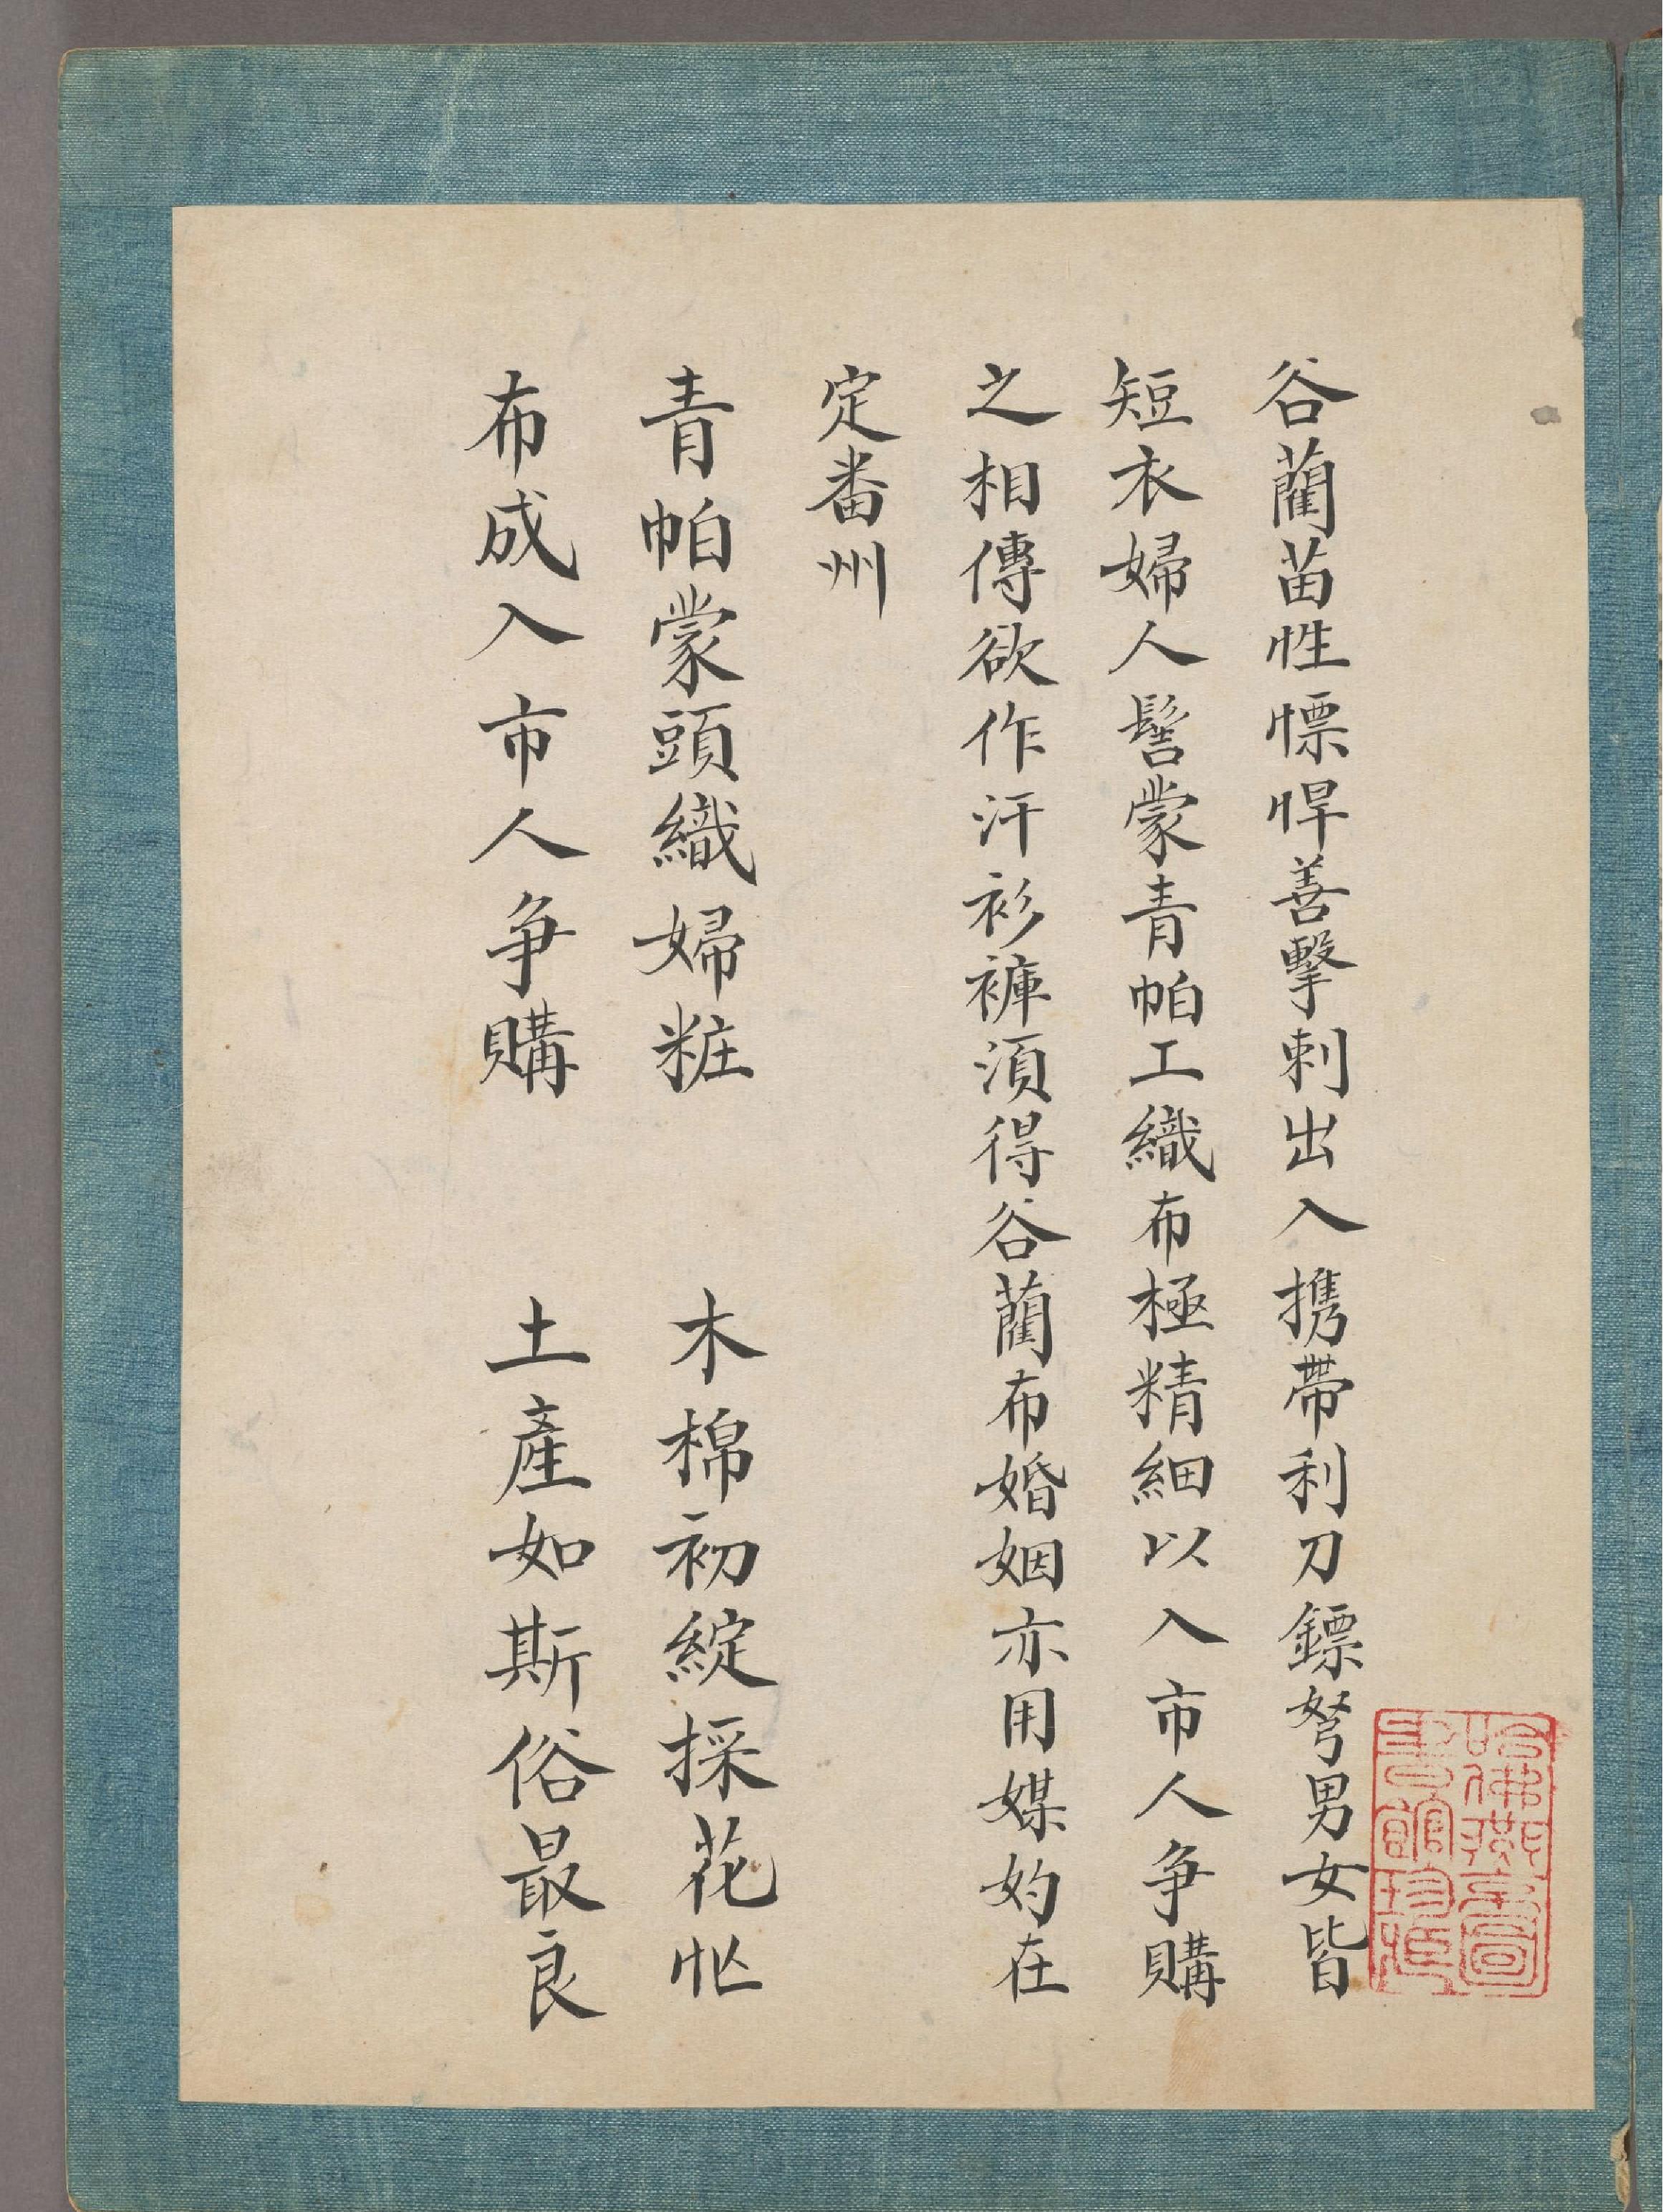 谷藺苗性慓悍善擊刺出入携帶利刀鏢弩男女皆
短衣婦人髻蒙青帕工織布極精細以入市人争購
之相傳欲作汗衫褲湏得谷藺布婚姻亦用媒妁在
定番州
青帕蒙頭織婦粧　木棉初綻採花忙
布成入市人争購　土產如斯俗最良
哈佛燕京圖
書館珍藏